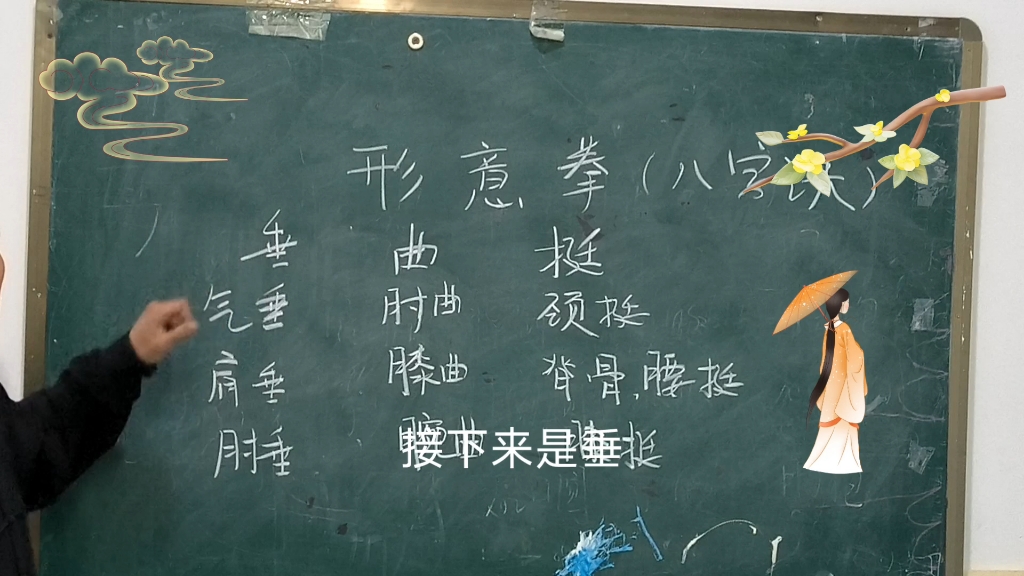 形意拳(八字诀)
垂 曲 挺
气垂 肘曲 颈挺
肩垂 膝曲 脊骨,腰挺
肘垂 曲 膝挺
接下来是垂